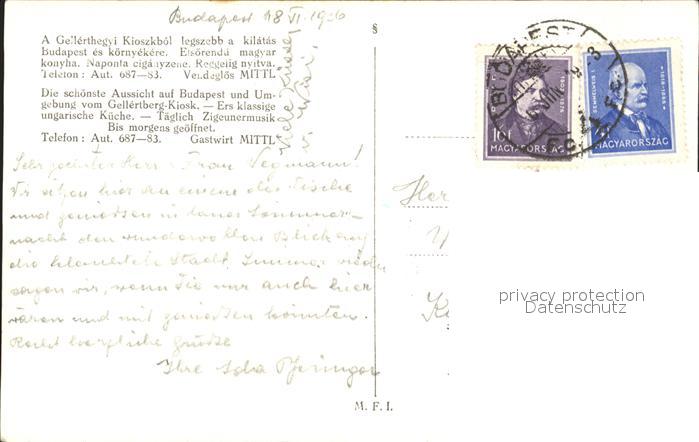 Budapest 18 VI. 1936
A Gellérthegyi Kioszkból legszebb a kilátás
Budapest és környékére. Elsőrendű magyar
konyha. Naponta cigányzene. Reggelig nyitva.
Telefon: Aut. 687—83. Vendéglős MITTL
Die schönste Aussicht auf Budapest und Um-
gebung vom Gellértberg-Kiosk. — Ers klassige
ungarische Küche. — Täglich Zigeunermusik
Bis morgens geöffnet.
Telefon: Aut. 687—83. Gastwirt MITTL
Viele Küsse
Sehr geehrter Herr u. Frau Wegmann!
Wir sitzen hier an einem der Tische
und geniessen in lauer Sommer-
nacht den wundervollen Blick auf
die beleuchtete Stadt. Immer wieder
sagen wir, wenn Sie nur auch hier
wären und mit geniessen könnten.
Recht herzliche Grüsse
Ihre
§
M. F. I.
BUDAPEST
10f
MAGYARORSZÁG
SEMMELWEIS I.
1818-1865
MAGYARORSZÁG
privacy protection
Datenschutz